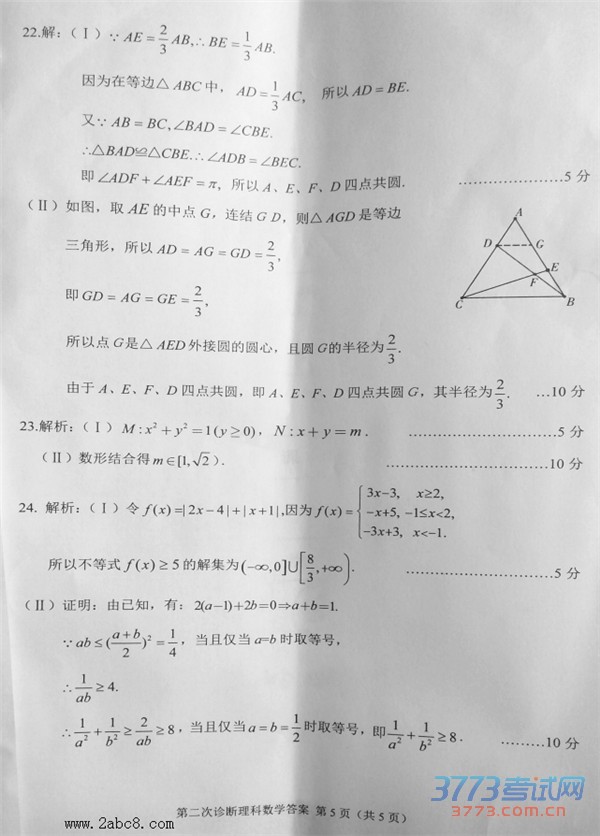 22.解:(Ⅰ)∵ AE = 2/3 AB,∴ BE = 1/3 AB.
因为在等边△ ABC 中, AD = 1/3 AC, 所以 AD = BE.
又∵ AB = BC,∠BAD = ∠CBE.
∴△BAD≌△CBE.∴∠ADB = ∠BEC.
即 ∠ADF + ∠AEF = π, 所以 A、E、F、D 四点共圆. ………………5 分
(Ⅱ)如图,取 AE 的中点 G,连结 G D,则△ AGD 是等边
三角形,所以 AD = AG = GD = 2/3,
即 GD = AG = GE = 2/3,
所以点 G 是△ AED 外接圆的圆心,且圆 G 的半径为 2/3.
由于 A、E、F、D 四点共圆,即 A、E、F、D 四点共圆 G,其半径为 2/3. …10 分
A
D
G
E
F
C
B
23.解析:(Ⅰ) M : x² + y² = 1(y ≥ 0), N : x + y = m. ………………………5 分
(Ⅱ)数形结合得 m∈[1, √2). …………………………10 分
24. 解析:(Ⅰ)令 f(x) =| 2x − 4 | + | x + 1 |,因为 f(x) = { 3x−3, x≥2,
−x+5, −1≤x<2,
−3x+3, x<−1.
所以不等式 f(x) ≥ 5 的解集为 (−∞,0]∪[8/3,+∞). ………………………5 分
(Ⅱ)证明:由已知,有: 2(a−1)+2b=0⇒a+b=1.
∵ ab ≤ ((a+b)/2)² = 1/4,当且仅当 a=b 时取等号,
∴ 1/ab ≥ 4.
∴ 1/a² + 1/b² ≥ 2/ab ≥ 8,当且仅当 a = b = 1/2 时取等号,即 1/a² + 1/b² ≥ 8. ………10 分
第二次诊断理科数学答案 第 5 页(共 5 页)
www.2abc8.com
3773考试网
3773.com.cn